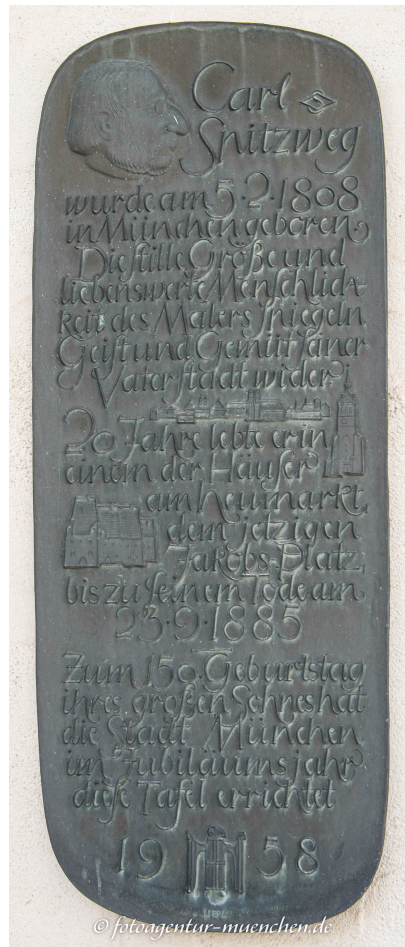 Carl
Spitzweg
wurde am 5·2·1808
in München geboren,
Die stille Größe und
liebenswerte Menschlich-
keit des Malers spiegeln
Geist und Gemüt seiner
Vaterstadt wider.
20 Jahre lebte er in
einem der Häuser
am Heumarkt,
dem jetzigen
Jakobs-Platz,
bis zu seinem Tode am
23·9·1885
Zum 150. Geburtstag
ihres großen Sohnes hat
die Stadt München
im Jubiläumsjahr
diese Tafel errichtet
19 58
© fotoagentur-muenchen.de